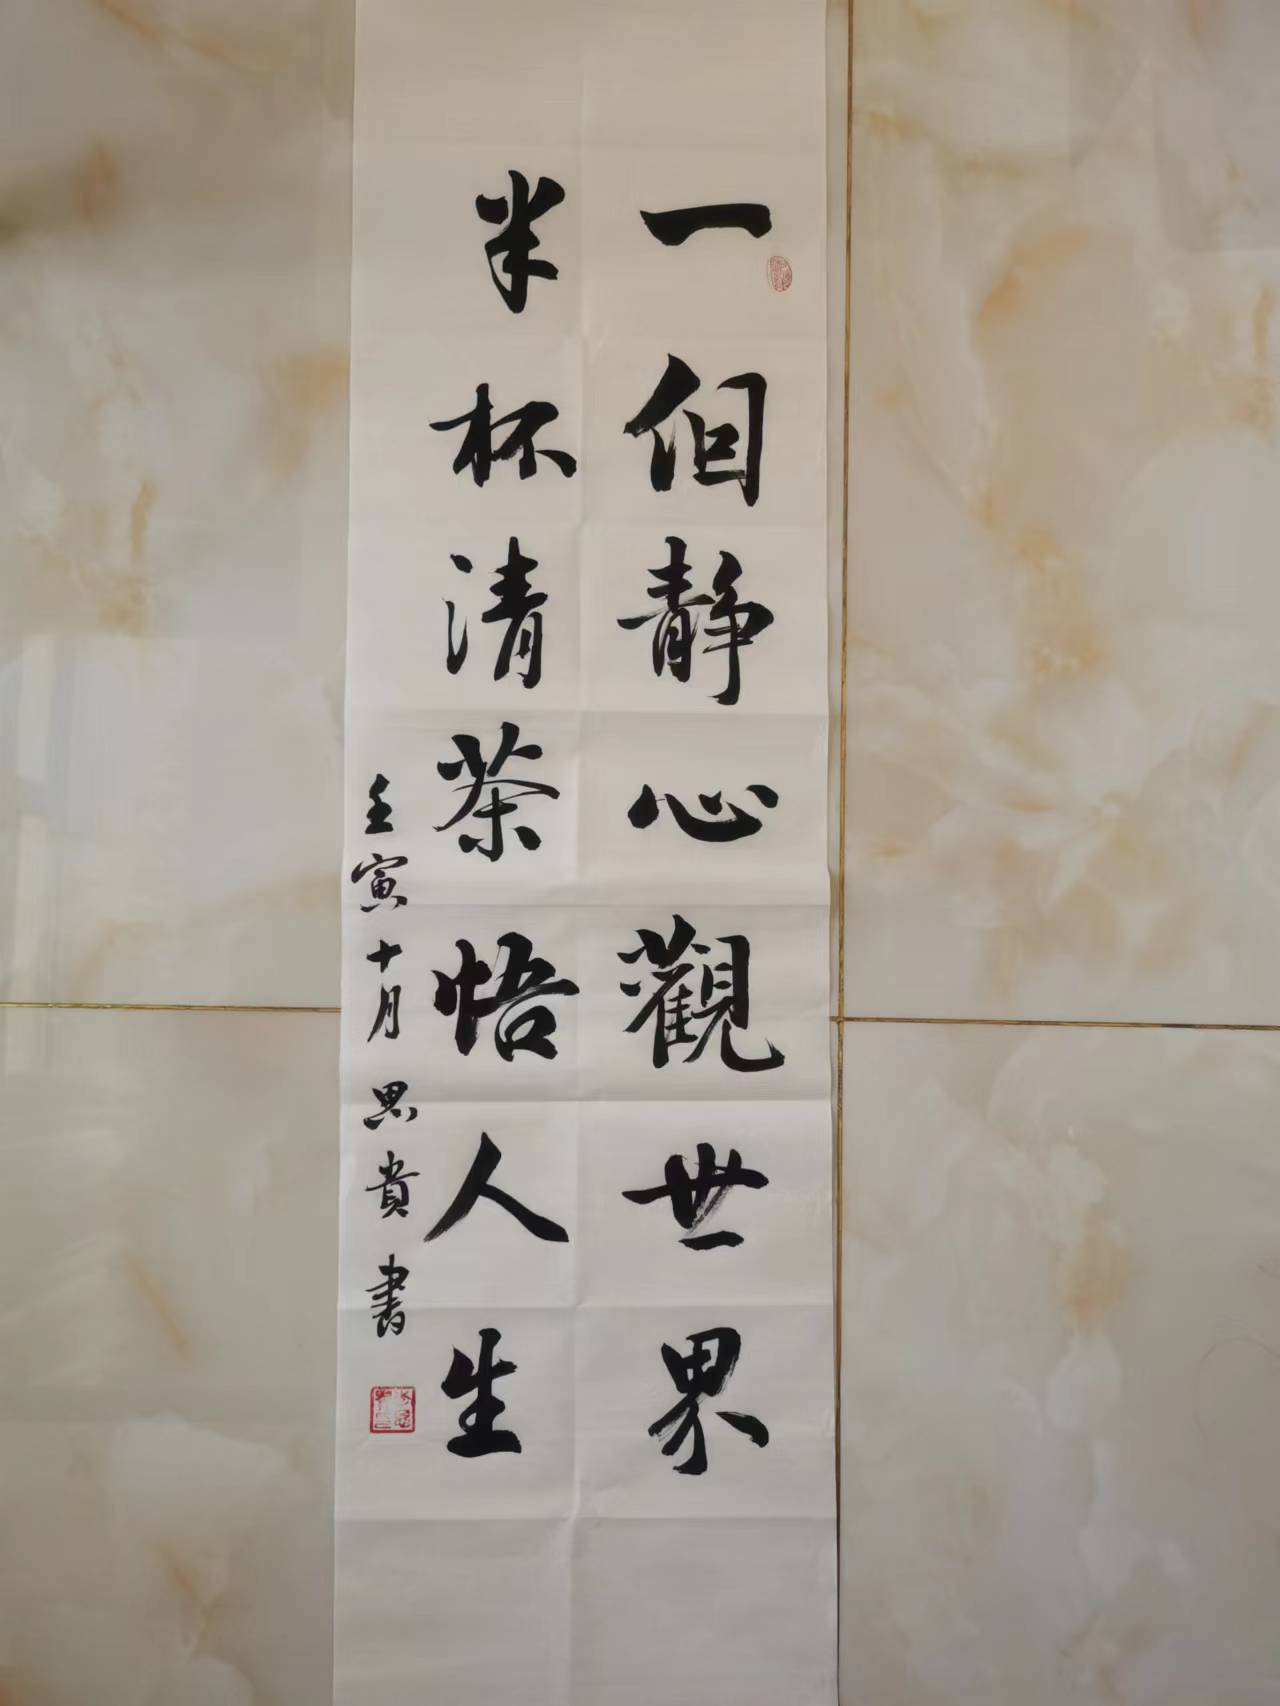 一個静心觀世界
半杯清茶悟人生
壬寅十月思貴書